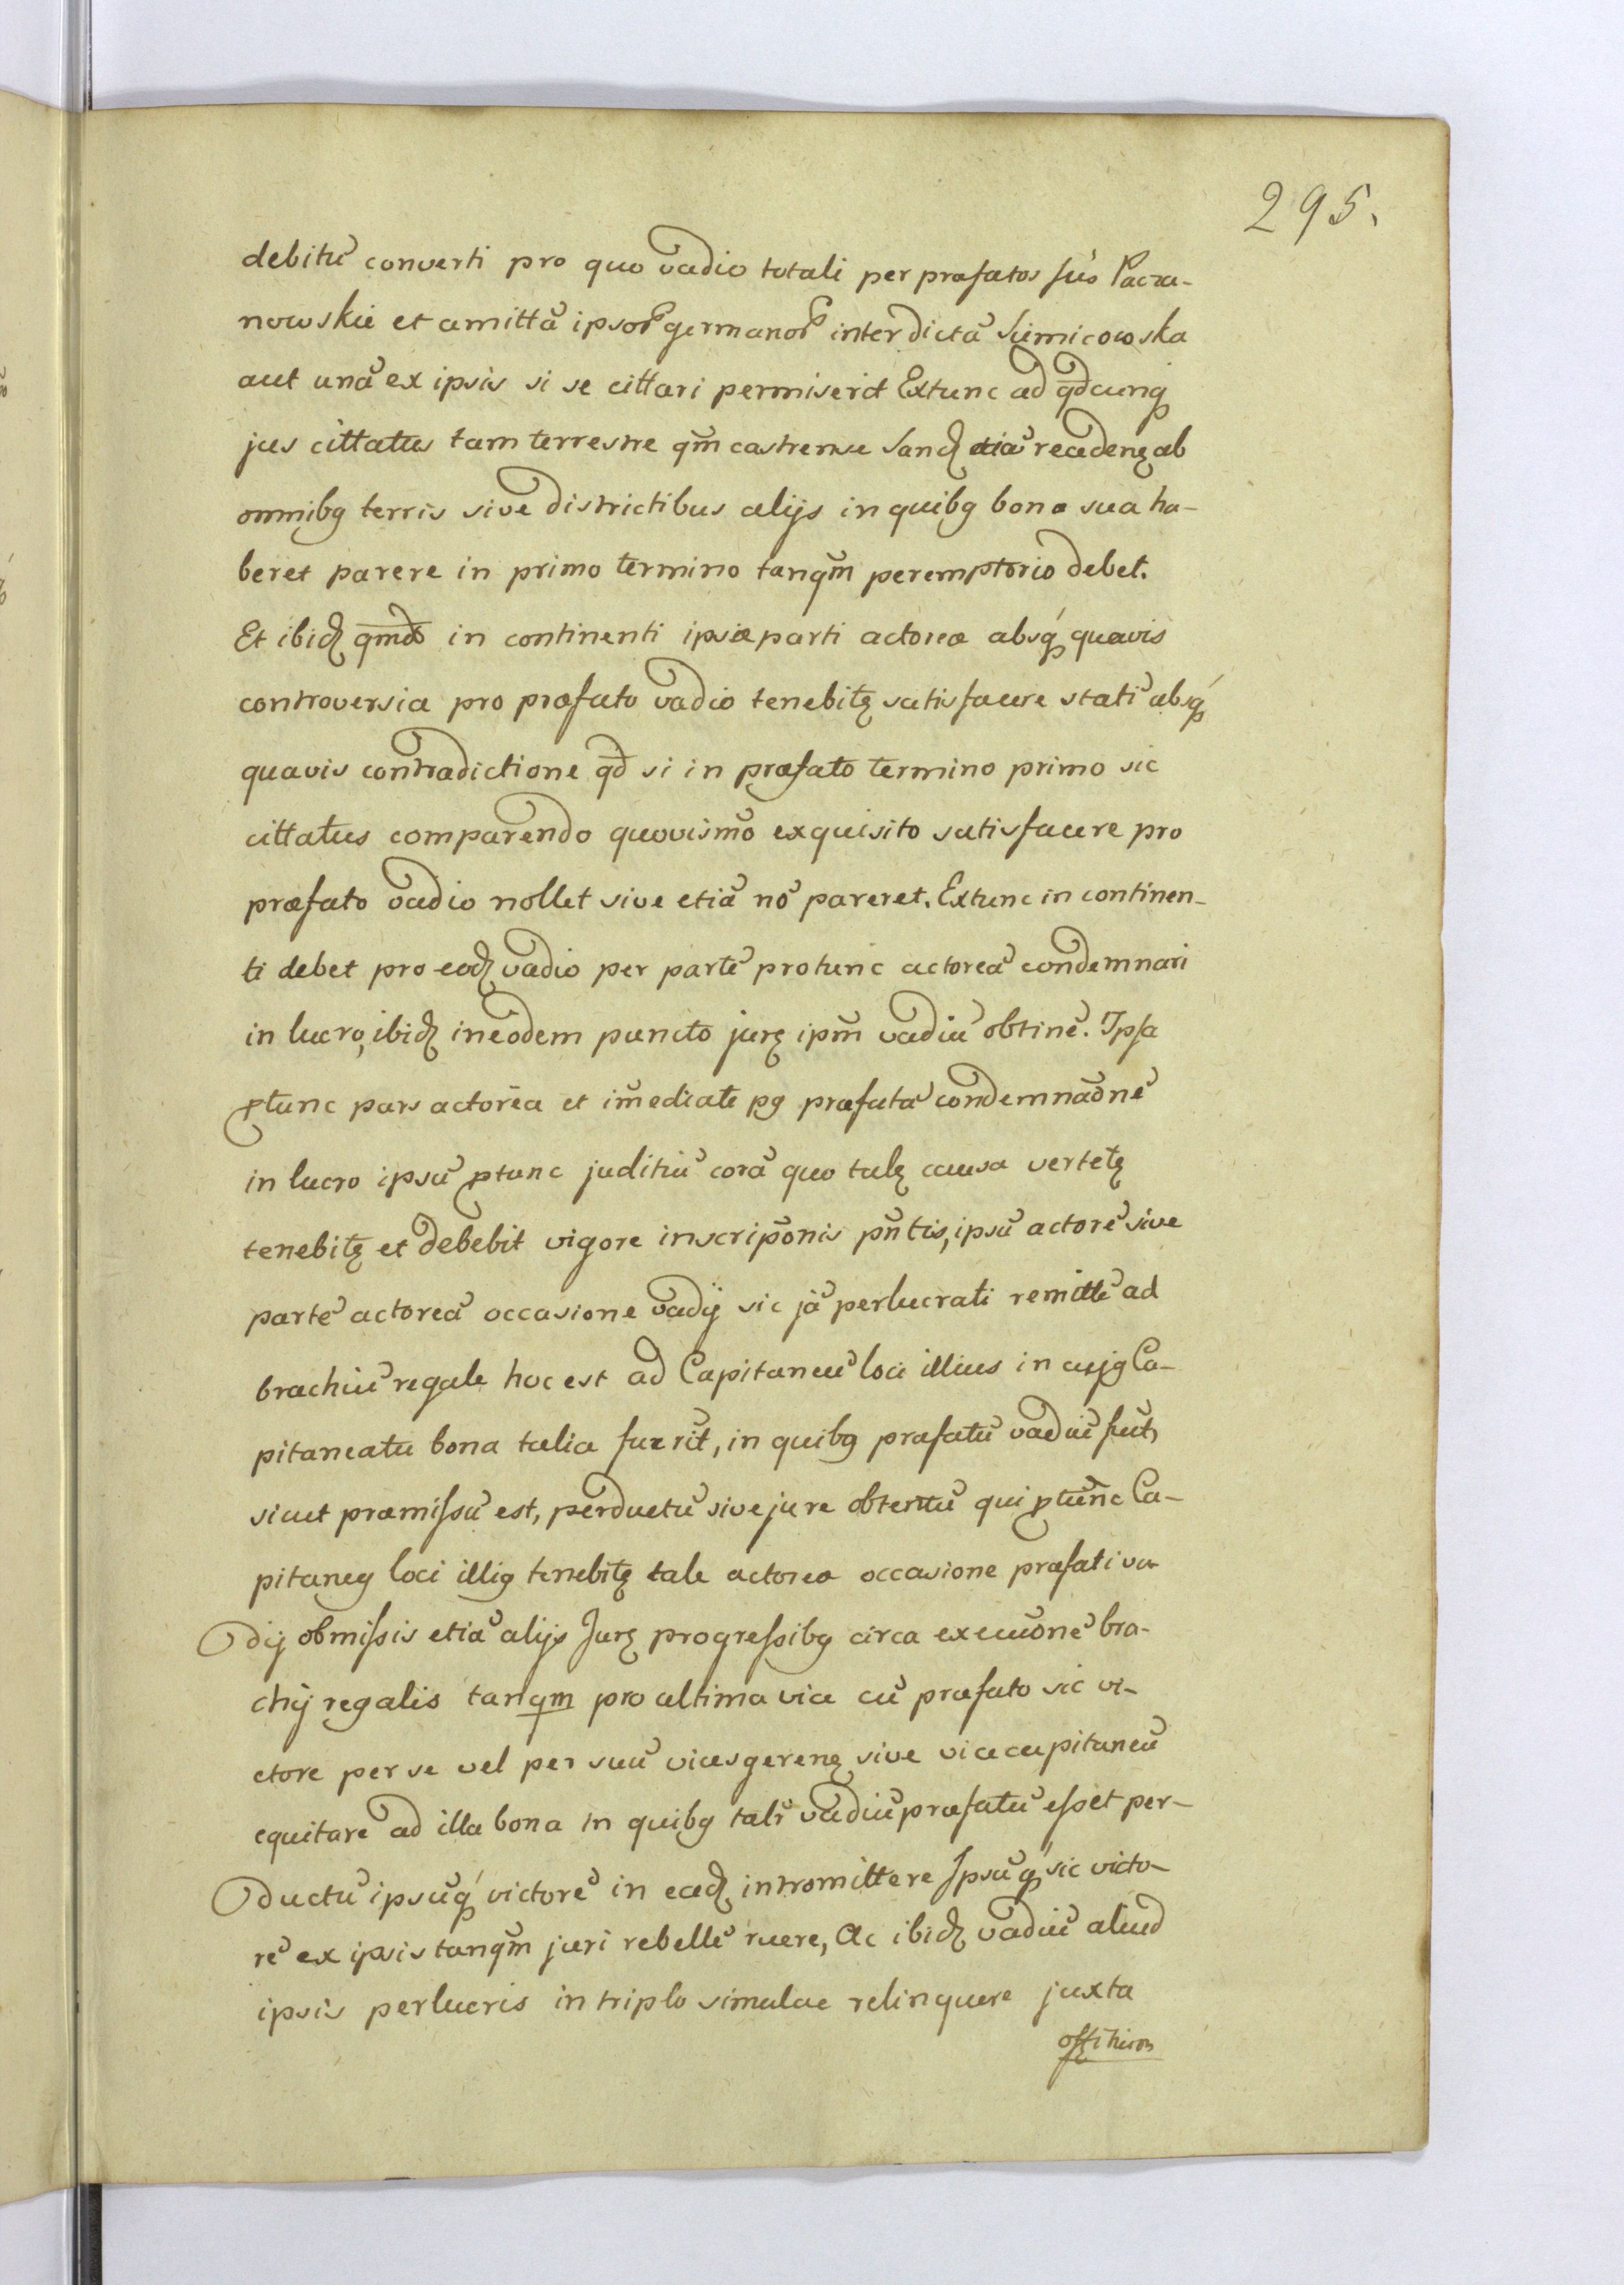 295.
debitũ converti pro quo vadio totali per præfatos suõs Pacza-
nowskie et amittã ipsoꝝ germanoꝝ interdictã Siemicowska
aut unã ex ipsis si se cittari permiserit Extunc ad qd̃cunqꝫ
jus cittatus tam terrestre qm̃ castrense Sandꝫ etiã recedenꝫ ab
omnibꝫ terris sive districtibus alijs in quibꝫ bona sua ha-
beret parere in primo termino tanqm̃ peremptorio debet.
Et ibidꝫ qmdo in continenti ipsæ parti actoreæ absqꝫ quavis
controversia pro præfato vadio tenebitꝫ satisfacere statĩ absqꝫ
quavis contradictione qd̃ si in præfato termino primo sic
cittatus comparendo quovismõ exquisito satisfacere pro
præfato vadio nollet sive etiã nõ pareret. Extunc in continen-
ti debet pro eodꝫ vadio per partẽ protunc actoreã condemnari
in lucro, ibidꝫ in eodem puncto jurꝫ ipm̃ vadiũ obtinẽ. Ipsa
ꝓtunc pars actorea et im̃ediate pꝫ præfatã condemnaõnẽ
in lucro ipsũ ꝓtunc juditiũ corã quo talꝫ causa vertetꝫ
tenebitꝫ et debebit vigore inscripõnis pñtis, ipsũ actorẽ sive
partẽ actoreã occasione vadij sic jã perlucrati remittẽ ad
brachiũ regale hoc est ad Capitaneũ loci illius in cujꝫ Ca-
pitaneatu bona talia fuerĩt, in quibꝫ præfatũ vadiũ fuit,
sicut præmissũ est, perductũ sive jure obtentũ qui ꝓtunc Ca-
pitaneꝫ loci illiꝫ tenebitꝫ tale actoreæ occasione præfati va-
dij obmissis etiã alijs Jurꝫ progressibꝫ circa execuõnẽ bra-
chij regalis tanqm pro ultima vice cũ præfato sic vi-
ctore per se vel per suũ vicesgerenꝫ sive vicecapitaneũ
equitare ad illa bona in quibꝫ tale vadiũ præfatũ esset per-
ductũ ipsũqꝫ victorẽ in eadꝫ intromittere Ipsũqꝫ sic victo-
rẽ ex ipsis tanqm̃ juri rebellẽ ruere, Ac ibidꝫ vadiũ aliud
ipsis perlucris in triplo simulac relinquere juxta
offitium